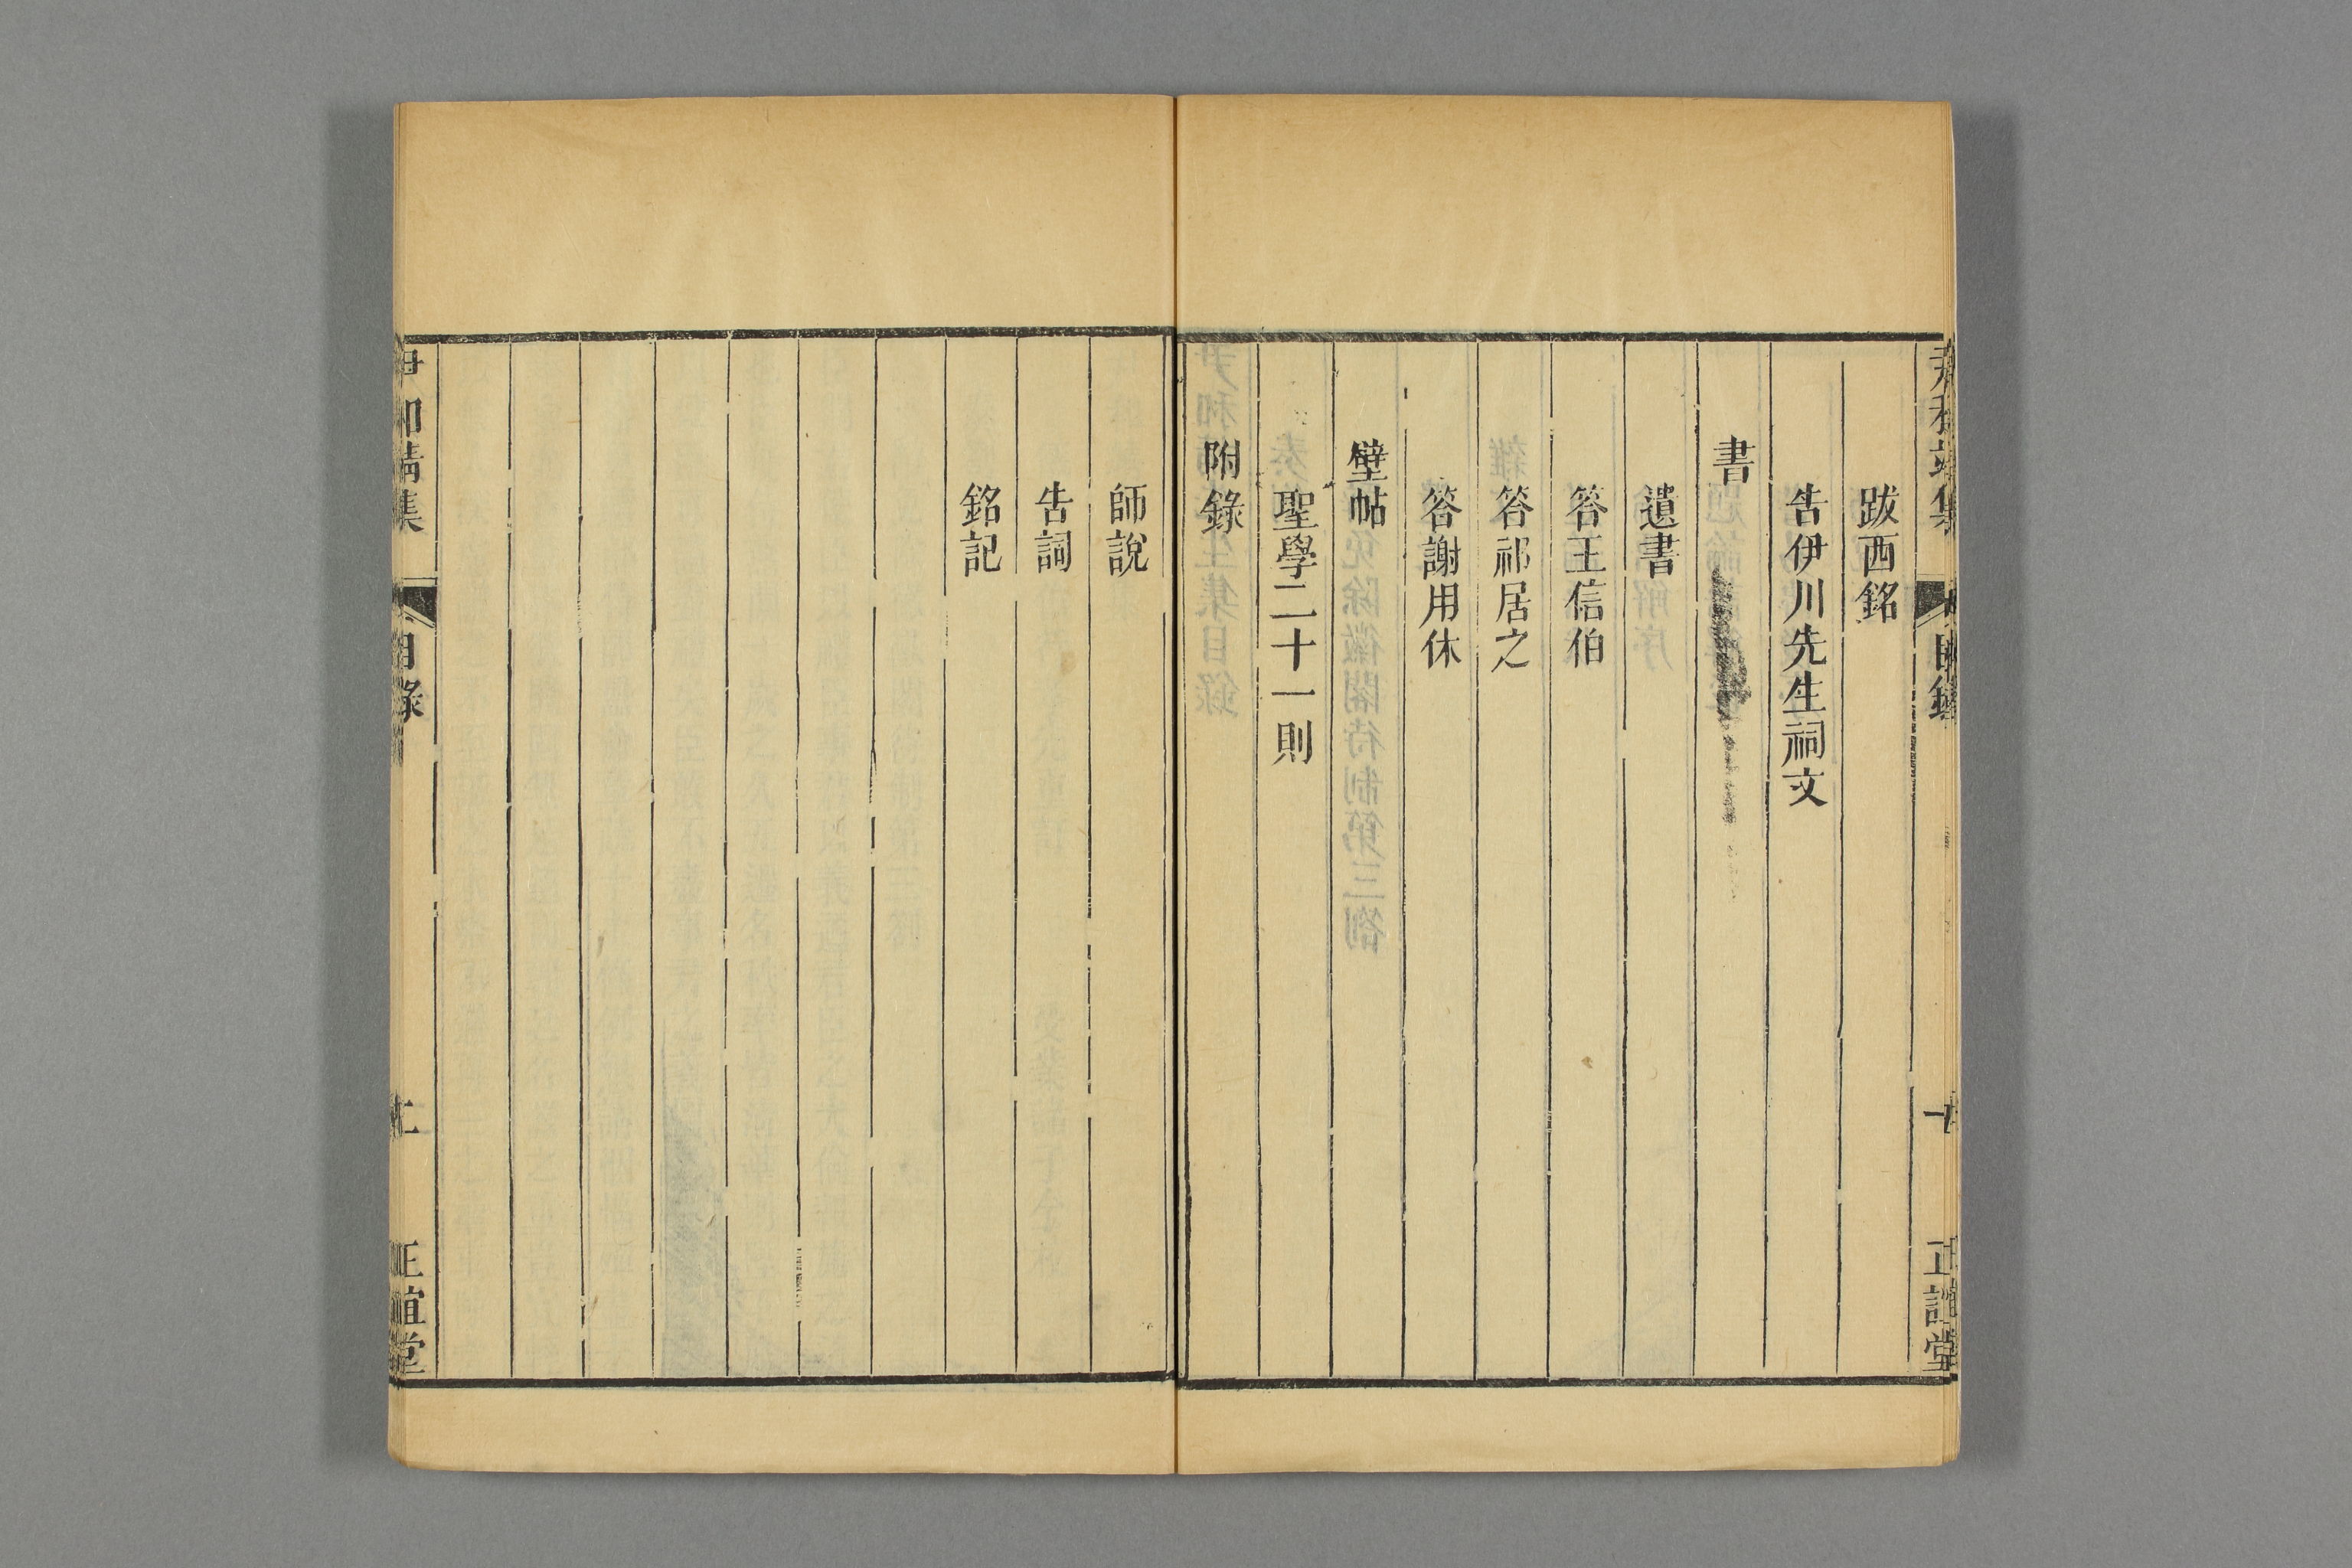 尹和靖集
目錄
正誼堂
跋西銘
告伊川先生祠文
書
遺書
答王信伯
答祁居之
答謝用休
壁帖
聖學二十一則
附錄
師說
告詞
銘記
尹和靖集
目錄
二
正誼堂